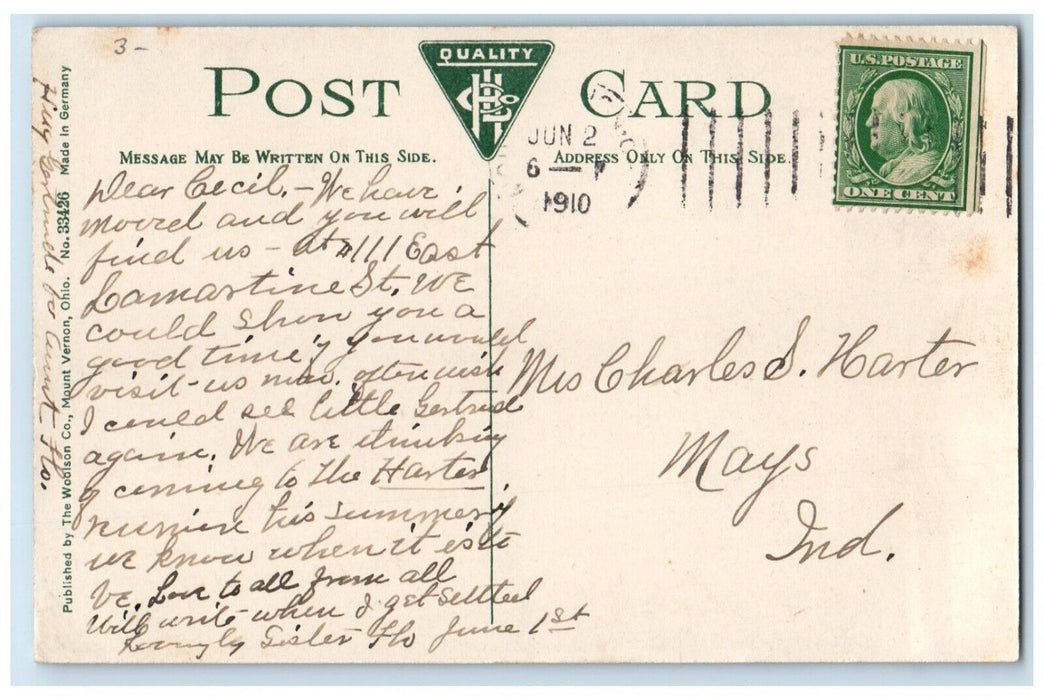 3-
POST CARD
QUALITY
MESSAGE MAY BE WRITTEN ON THIS SIDE.
ADDRESS ONLY ON THIS SIDE.
U.S. POSTAGE
ONE CENT
JUN 2
6 — P
1910
Dear Cecil, – We have
moved and you will
find us – at #111 East
Lamartine St. We
could show you a
good time if you would
visit us now. often wish
I could see little Gertrude
again. We are thinking
of coming to the Harter
reunion this summer if
we know when it is to
be. Love to all from all
Will write when I get settled
Lovingly Sister Flo June 1st
Mrs Charles S. Harter
Mays
Ind.
Hug Gertrude for Aunt Flo.
Published by The Woolson Co., Mount Vernon, Ohio. No. 33426 Made in Germany